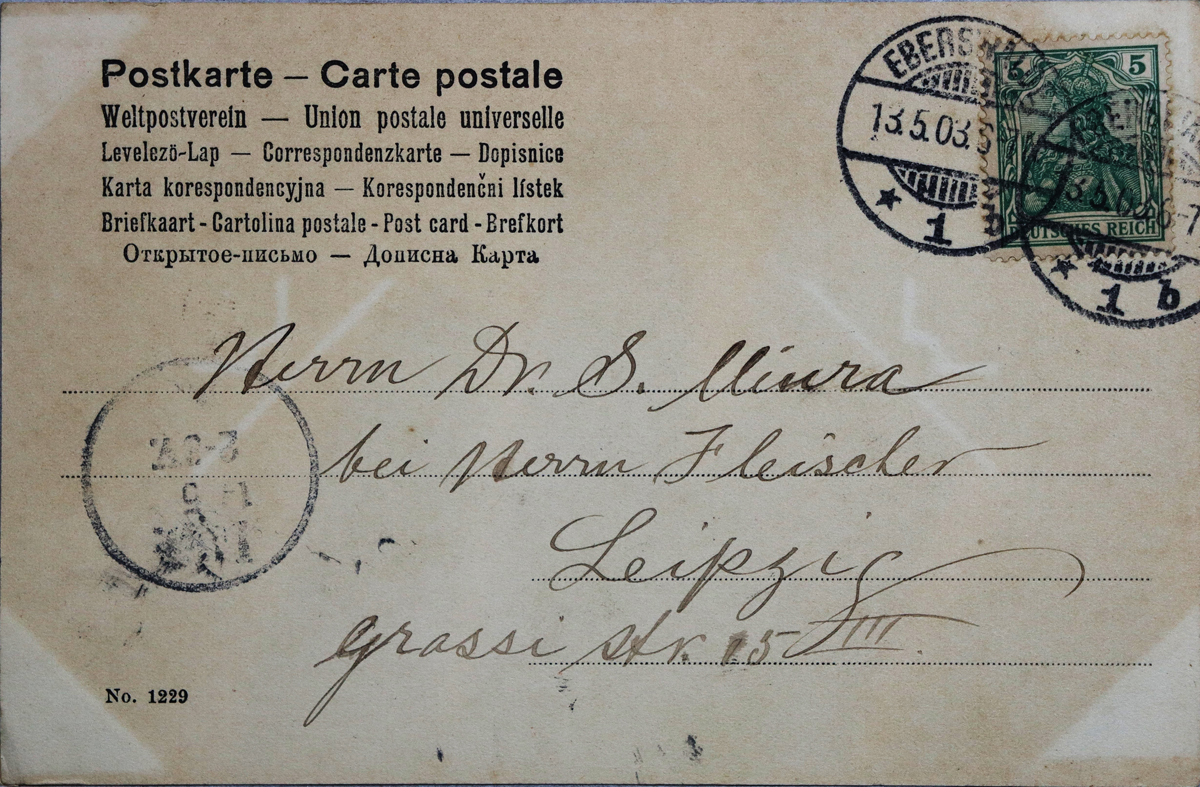 Postkarte – Carte postale
Weltpostverein — Union postale universelle
Levelezö-Lap — Correspondenzkarte — Dopisnice
Karta korespondencyjna — Korespondenčni lístek
Briefkaart - Cartolina postale - Post card - Brefkort
Открытое-письмо — Дописна Карта
5 5
DEUTSCHES REICH
13.5.03.6-7
1 b
13.5.03.6-7
1 b
Herrn Dr. S. Miura
bei Herrn Fleischer
Leipzig
Grassi str. 15 III.
No. 1229